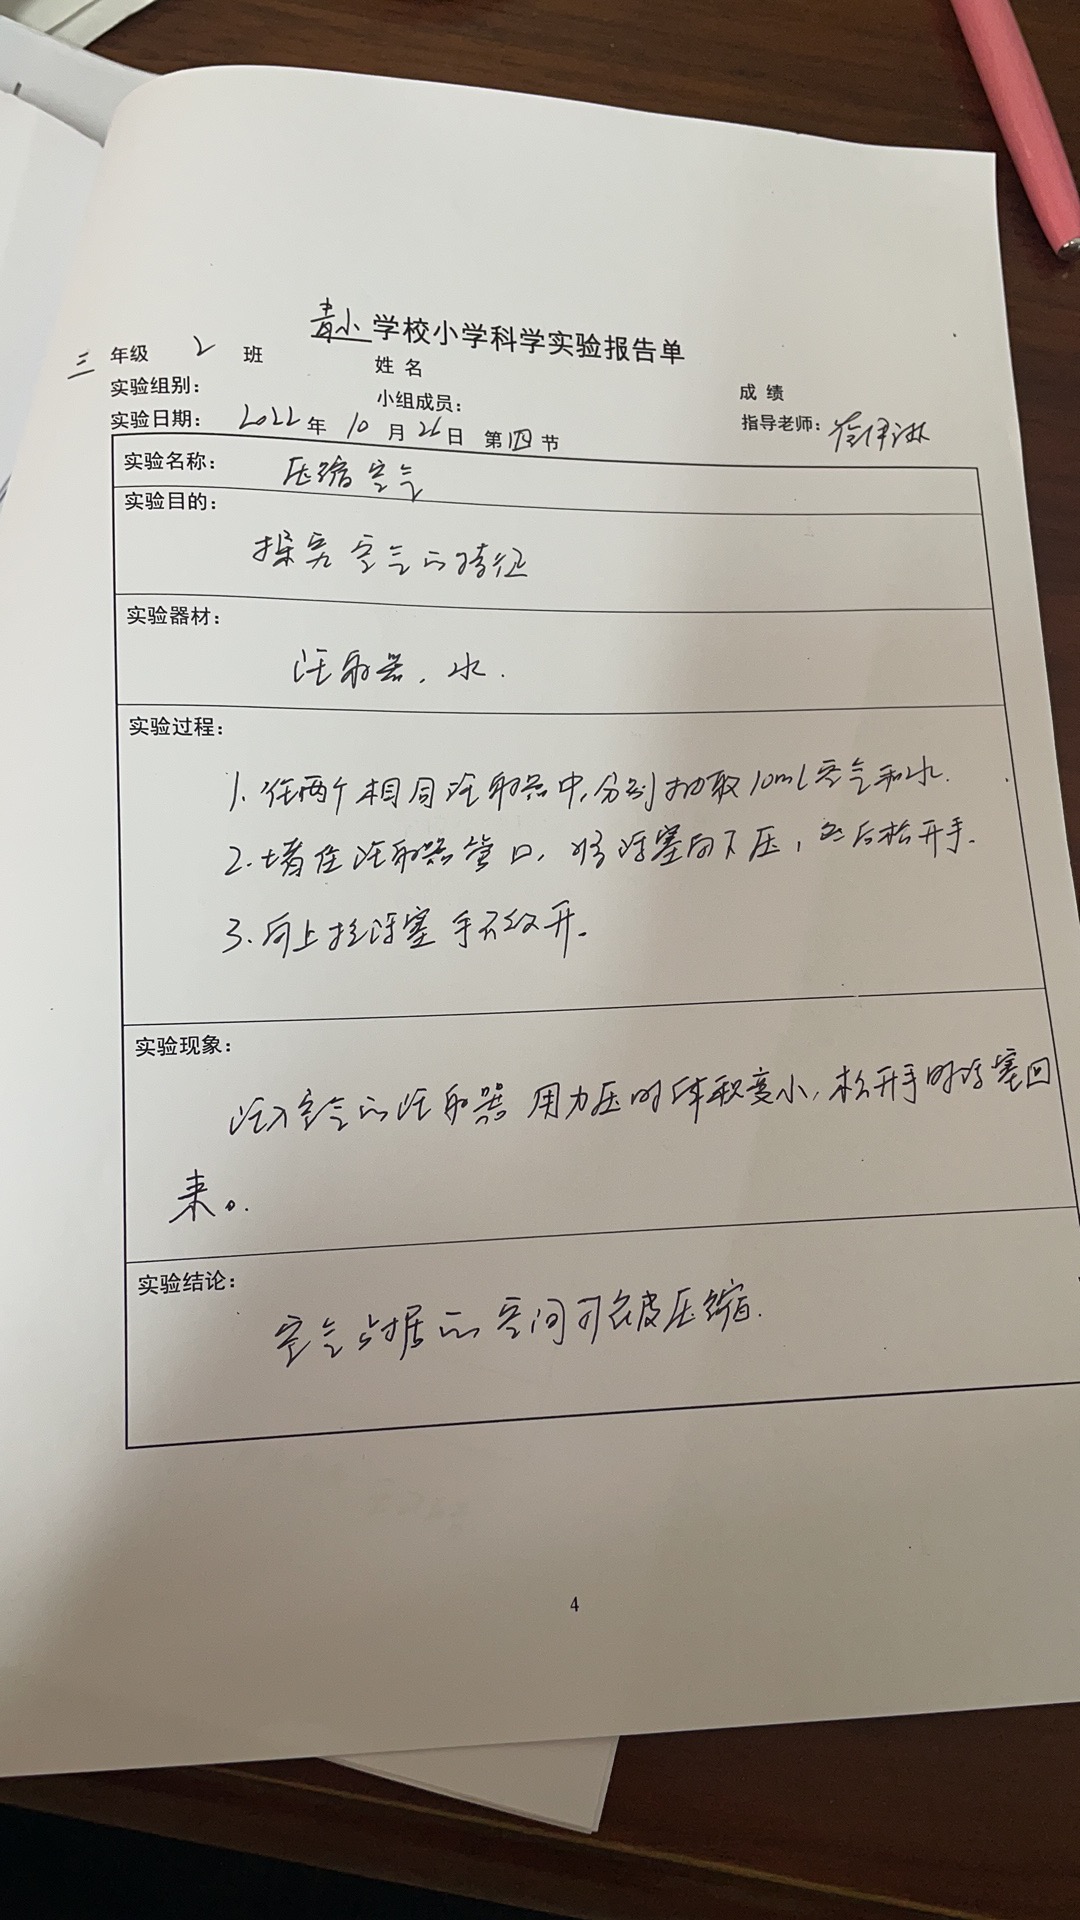 青小学校小学科学实验报告单
三年级 2 班 姓名
实验组别: 小组成员: 成绩
实验日期: 2022年10月26日 第四节 指导老师:
实验名称: 压缩空气
实验目的:
探究空气的特征
实验器材:
注射器、水.
实验过程:
1. 在两个相同注射器中,分别抽取10ml空气和水.
2. 堵住注射器管口, 将活塞向下压, 然后松开手.
3. 向上拉活塞 手不放开.
实验现象:
注入空气的注射器 用力压时体积变小, 松开手时活塞回
来。
实验结论:
空气占据的空间可被压缩.
4